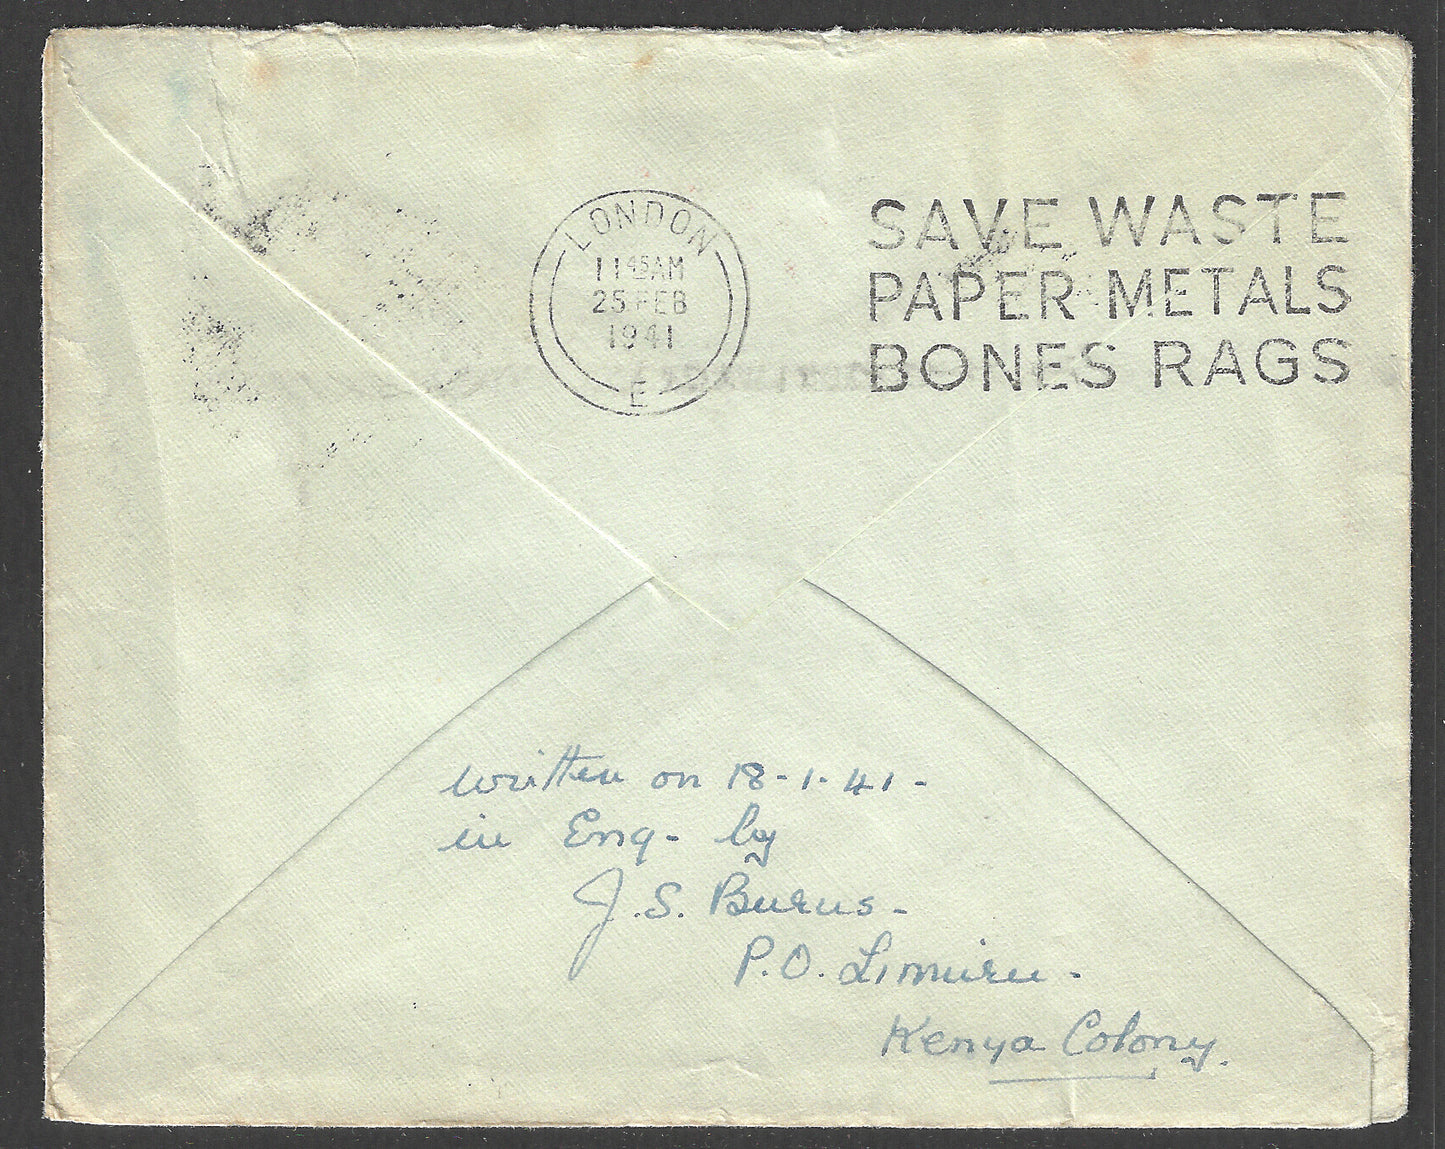 LONDON
11 45AM
25 FEB
1941
E
SAVE WASTE
PAPER METALS
BONES RAGS
written on 18-1-41-
in Eng- by
J.S. Burns-
P.O. Limuru-
Kenya Colony.